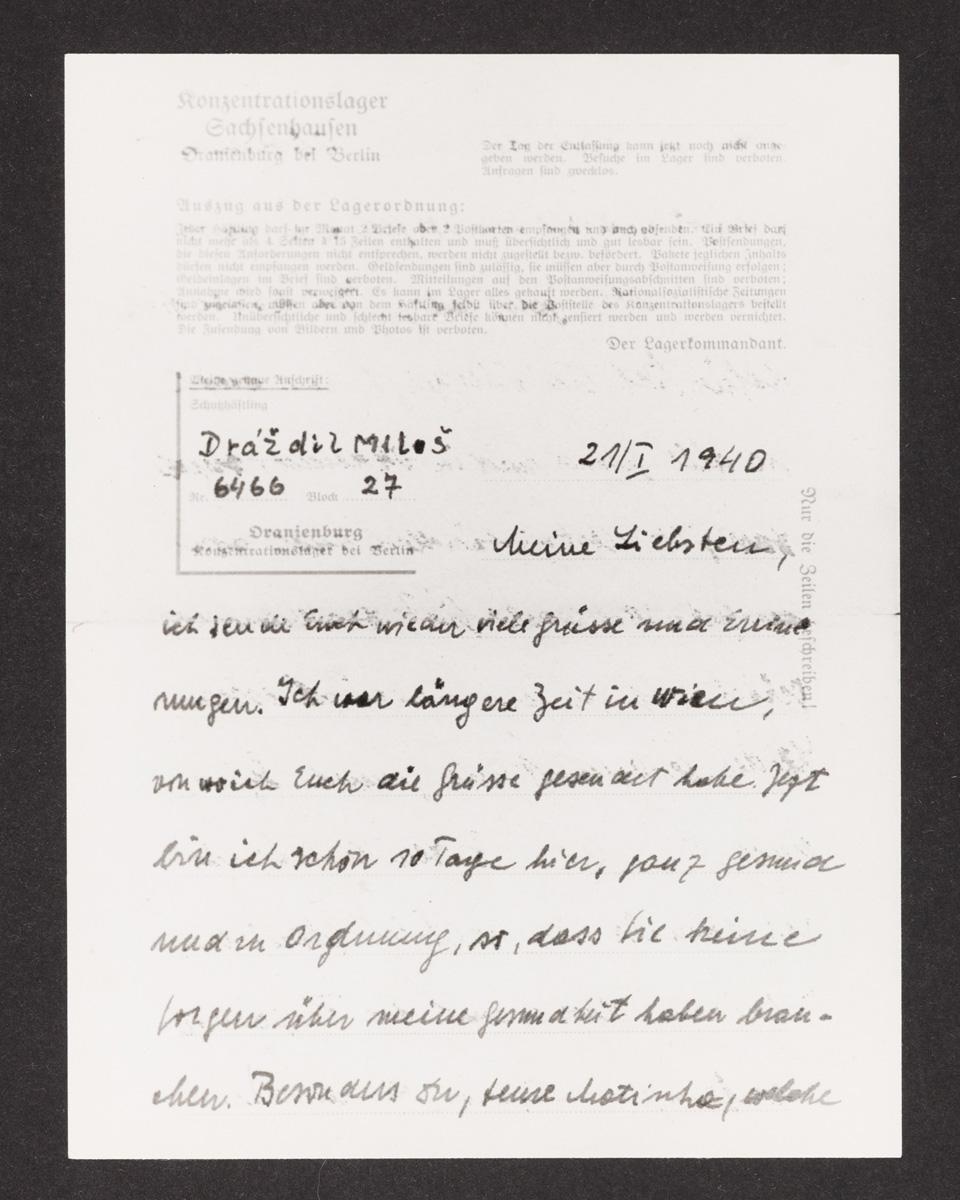 Konzentrationslager
Sachsenhausen
Oranienburg bei Berlin
Der Tag der Entlassung kann jetzt noch nicht ange-
geben werden. Besuche im Lager sind verboten.
Anfragen sind zwecklos.
Auszug aus der Lagerordnung:
Jeder Häftling darf im Monat 2 Briefe oder 2 Postkarten empfangen und auch absenden. Ein Brief darf
nicht mehr als 4 Seiten à 15 Zeilen enthalten und muß übersichtlich und gut lesbar sein. Postsendungen,
die diesen Anforderungen nicht entsprechen, werden nicht zugestellt bezw. befördert. Pakete jeglichen Inhalts
dürfen nicht empfangen werden. Geldsendungen sind zulässig, sie müssen aber durch Postanweisung erfolgen;
Geldeinlagen im Brief sind verboten. Mitteilungen auf den Postanweisungsabschnitten sind verboten;
Annahme wird sonst verweigert. Es kann im Lager alles gekauft werden. Nationalsozialistische Zeitungen
sind zugelassen, müssen aber von dem Häftling selbst über die Poststelle des Konzentrationslagers bestellt
werden. Unübersichtliche und schlecht lesbare Briefe können nicht zensiert werden und werden vernichtet.
Die Zusendung von Bildern und Photos ist verboten.
Der Lagerkommandant.
Meine genaue Anschrift:
Schutzhäftling
Dráždil Miloš
21/I 1940
Nr. 6466 Block 27
Oranienburg
Konzentrationslager bei Berlin
Meine Liebsten,
Nur die Zeilen beschreiben!
ich sende Euch wieder viele Grüsse und Erinne
rungen. Ich war längere Zeit in Wien,
von wo ich Euch die Grüsse gesendet habe. Jezt
bin ich schon 10 Tage hier, ganz gesund
und in Ordnung, so, dass Sie keine
Sorgen über meine Gesundheit haben brau-
chen. Besonders Du, teure Matinka, welche